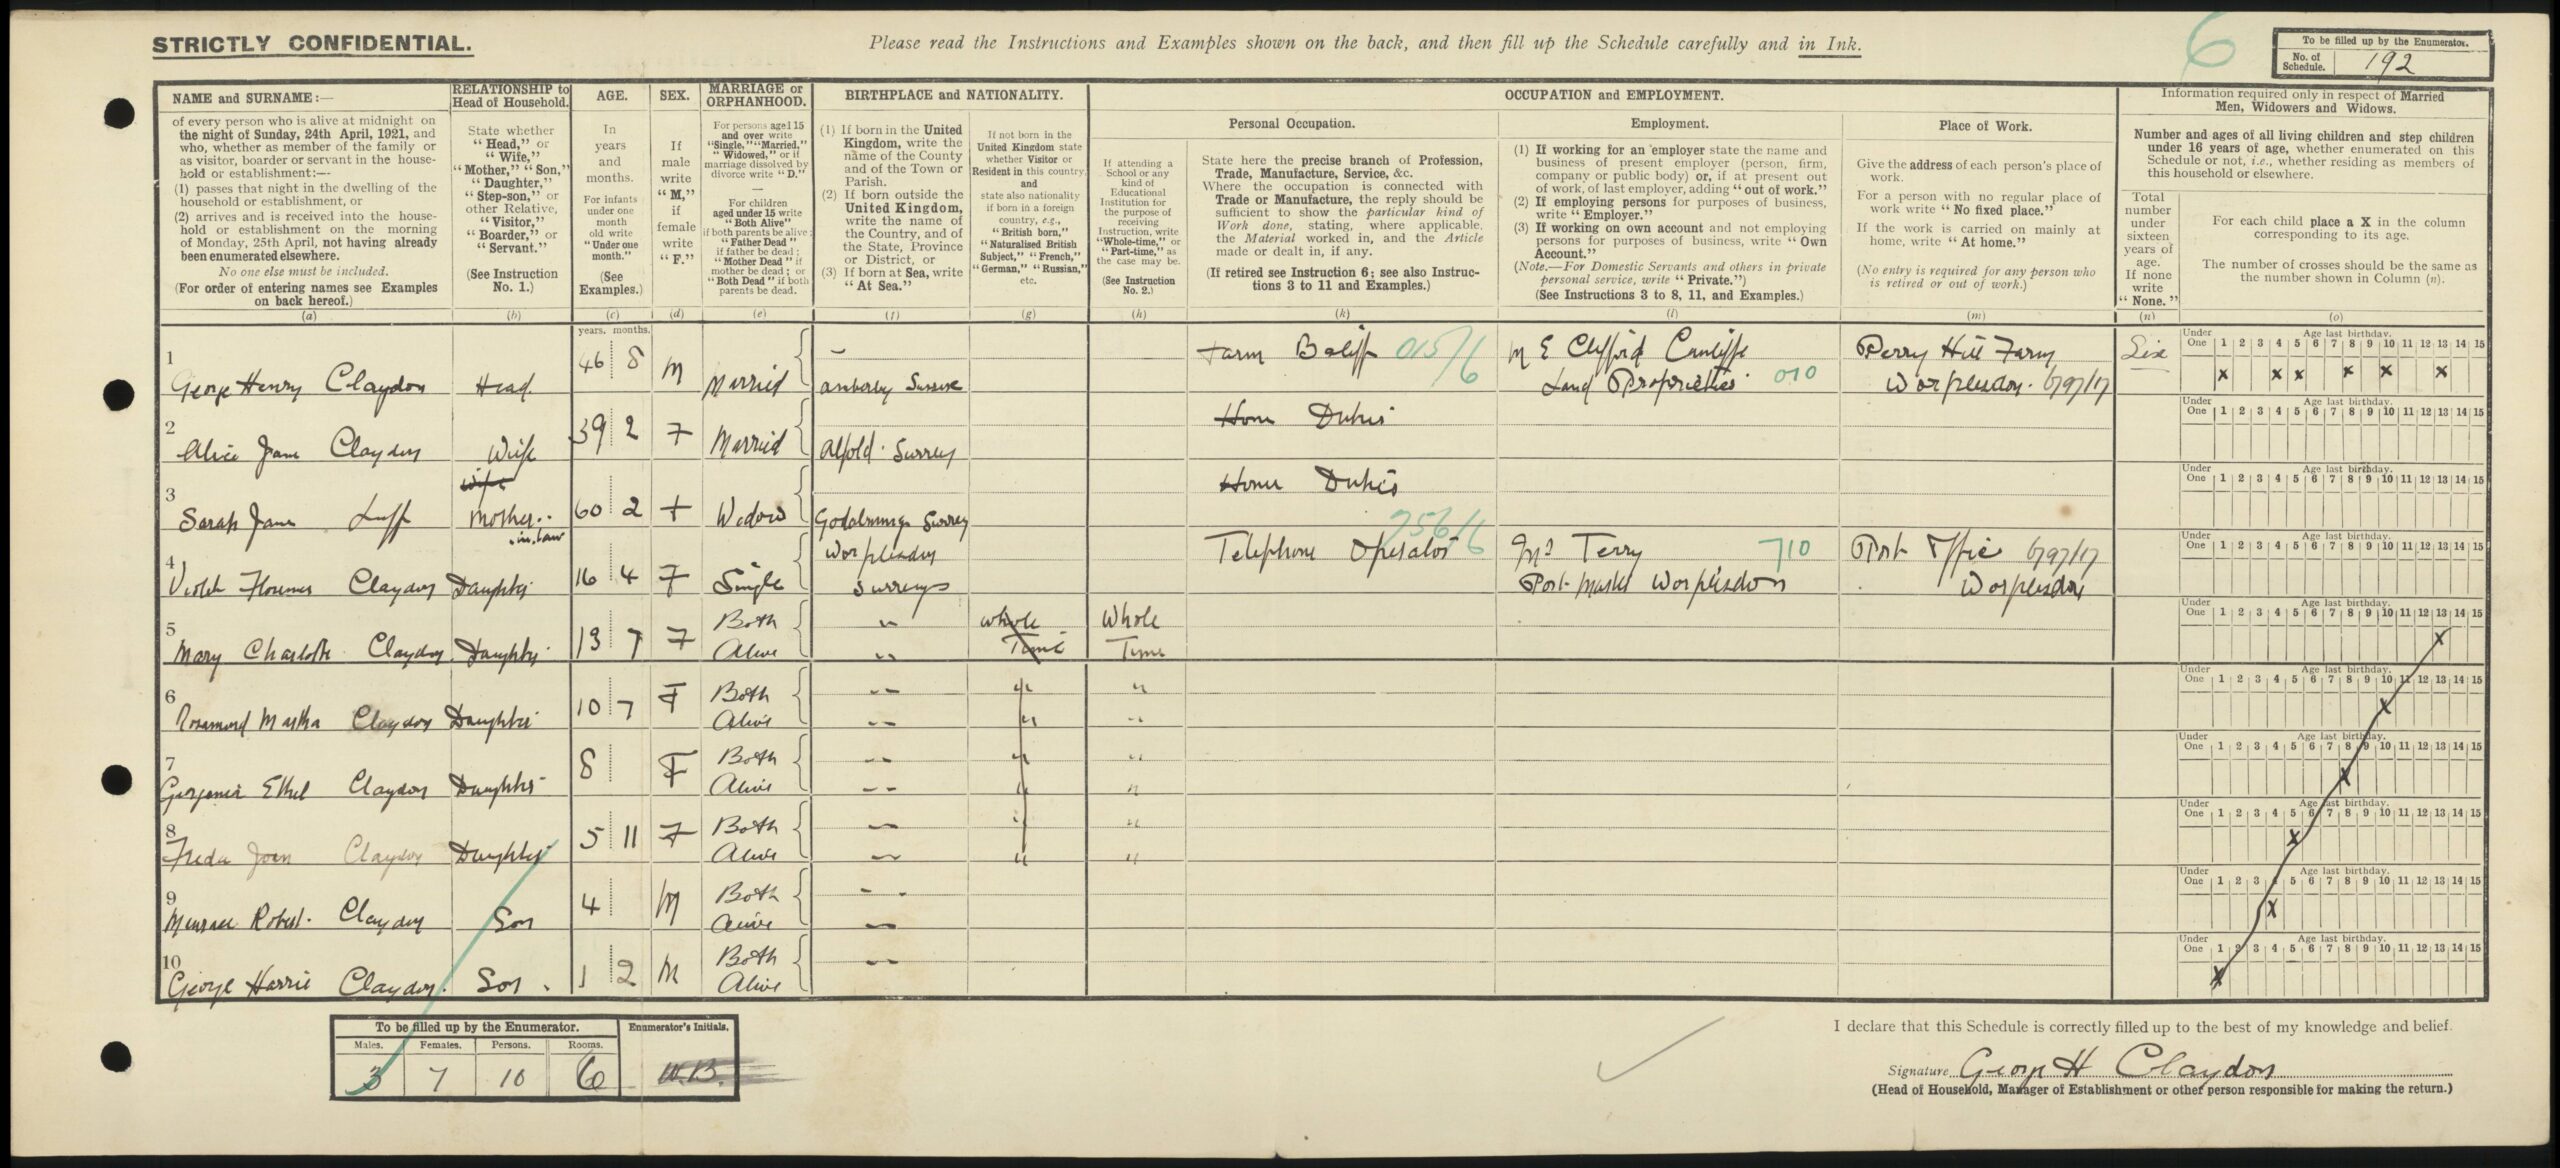 STRICTLY CONFIDENTIAL.
Please read the Instructions and Examples shown on the back, and then fill up the Schedule carefully and in Ink.
6
To be filled up by the Enumerator.
No. of Schedule. 192
NAME and SURNAME:—
of every person who is alive at midnight on
the night of Sunday, 24th April, 1921, and
who, whether as member of the family or
as visitor, boarder or servant in the house-
hold or establishment:—
(1) passes that night in the dwelling of the
household or establishment, or
(2) arrives and is received into the house-
hold or establishment on the morning
of Monday, 25th April, not having already
been enumerated elsewhere.
No one else must be included.
(For order of entering names see Examples
on back hereof.)
(a)
RELATIONSHIP to
Head of Household.
State whether
"Head," or
"Wife,"
"Mother," "Son,"
"Daughter,"
"Step-son," or
other Relative,
"Visitor,"
"Boarder," or
"Servant."
(See Instruction
No. 1.)
(b)
AGE.
In
years
and
months.
For infants
under one
month
old write
"Under one
month."
(See
Examples.)
(c)
years. months.
SEX.
If
male
write
"M,"
if
female
write
"F."
(d)
MARRIAGE or
ORPHANHOOD.
For persons aged 15
and over write
"Single," "Married,"
"Widowed," or if
marriage dissolved by
divorce write "D."
For children
aged under 15 write
"Both Alive"
if both parents be alive;
"Father Dead"
if father be dead;
"Mother Dead" if
mother be dead; or
"Both Dead" if both
parents be dead.
(e)
BIRTHPLACE and NATIONALITY.
(1) If born in the United
Kingdom, write the
name of the County
and of the Town or
Parish.
(2) If born outside the
United Kingdom,
write the name of
the Country, and of
the State, Province
or District, or
(3) If born at Sea, write
"At Sea."
(f)
If not born in the
United Kingdom state
whether Visitor or
Resident in this country,
and
state also nationality
if born in a foreign
country, e.g.,
"British born,"
"Naturalised British
Subject," "French,"
"German," "Russian,"
etc.
(g)
OCCUPATION and EMPLOYMENT.
If attending a
School or any
kind of
Educational
Institution for
the purpose of
receiving
Instruction, write
"Whole-time," or
"Part-time," as
the case may be.
(See Instruction
No. 2.)
(h)
Personal Occupation.
State here the precise branch of Profession,
Trade, Manufacture, Service, &c.
Where the occupation is connected with
Trade or Manufacture, the reply should be
sufficient to show the particular kind of
Work done, stating, where applicable,
the Material worked in, and the Article
made or dealt in, if any.
(If retired see Instruction 6; see also Instruc-
tions 3 to 11 and Examples.)
(k)
Employment.
(1) If working for an employer state the name and
business of present employer (person, firm,
company or public body) or, if at present out
of work, of last employer, adding "out of work."
(2) If employing persons for purposes of business,
write "Employer."
(3) If working on own account and not employing
persons for purposes of business, write "Own
Account."
(Note.—For Domestic Servants and others in private
personal service, write "Private.")
(See Instructions 3 to 8, 11, and Examples.)
(l)
Place of Work.
Give the address of each person's place of
work.
For a person with no regular place of
work write "No fixed place."
If the work is carried on mainly at
home, write "At home."
(No entry is required for any person who
is retired or out of work.)
(m)
Information required only in respect of Married
Men, Widowers and Widows.
Number and ages of all living children and step children
under 16 years of age, whether enumerated on this
Schedule or not, i.e., whether residing as members of
this household or elsewhere.
Total
number
under
sixteen
years of
age.
If none
write
"None."
(n)
For each child place a X in the column
corresponding to its age.
The number of crosses should be the same as
the number shown in Column (n).
(o)
Under One Age last birthday. 1 2 3 4 5 6 7 8 9 10 11 12 13 14 15
1 George Henry Claydon Head 46 8 M Married Amberley Sussex Farm Baliff 015/6 M E Clifford Cunliffe Land Proprietor 010 Perry Hill Farm Worplesdon. Six x x x x x x
2 Alice Jane Claydon Wife 39 2 F Married Alfold Surrey Home Duties
3 Sarah Jane Luff Wife Mother in law 60 2 F Widow Godalming Surrey Home Duties
4 Violet Florence Claydon Daughter 16 4 F Single Worplesdon Surrey Telephone Operator 756/6 Mr Terry 710 Post Master Worplesdon Post Office Worplesdon
5 Mary Charlotte Claydon Daughter 13 7 F Both Alive " " Whole Time Whole Time x
6 Rosamond Martha Claydon Daughter 10 7 F Both Alive " " " " " " x
7 Ethel Claydon Daughter 8 F Both Alive " " " " " " x
8 Freda Joan Claydon Daughter 5 11 F Both Alive " " " " " " x
9 Robert Claydon Son 4 M Both Alive " " x
10 George Harrie Claydon Son 1 2 M Both Alive " x
To be filled up by the Enumerator.
Males. Females. Persons. Rooms.
3 7 10 6
Enumerator's Initials.
W.B.
I declare that this Schedule is correctly filled up to the best of my knowledge and belief.
Signature George H Claydon
(Head of Household, Manager of Establishment or other person responsible for making the return.)